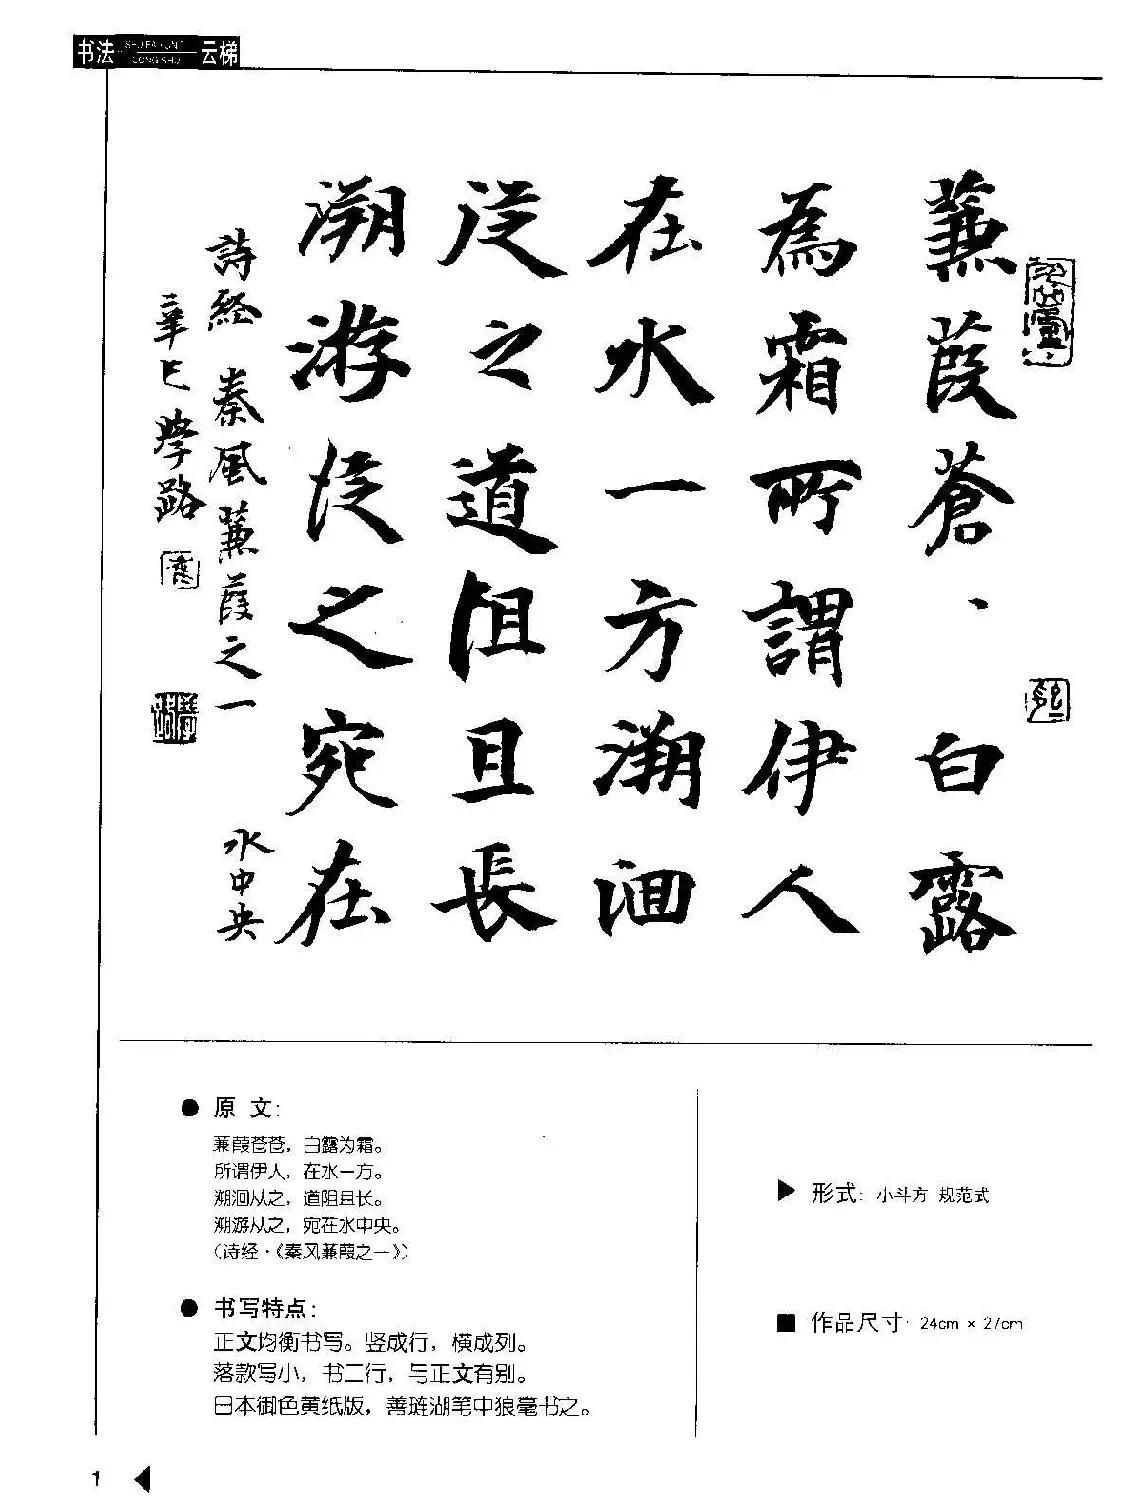 书法 云梯
蒹葭蒼、白露
為霜所謂伊人
在水一方溯洄
從之道阻且長
溯游從之宛在
水中央
詩經 秦風蒹葭之一
辛巳學路
● 原 文:
蒹葭苍苍，白露为霜。
所谓伊人，在水一方。
溯洄从之，道阻且长。
溯游从之，宛在水中央。
（诗经·《秦风蒹葭之一》）
● 书写特点:
正文均衡书写。竖成行，横成列。
落款写小，书二行，与正文有别。
日本御色黄纸版，善琏湖笔中狼毫书之。
▶ 形式: 小斗方 规范式
■ 作品尺寸: 24cm × 27cm
1